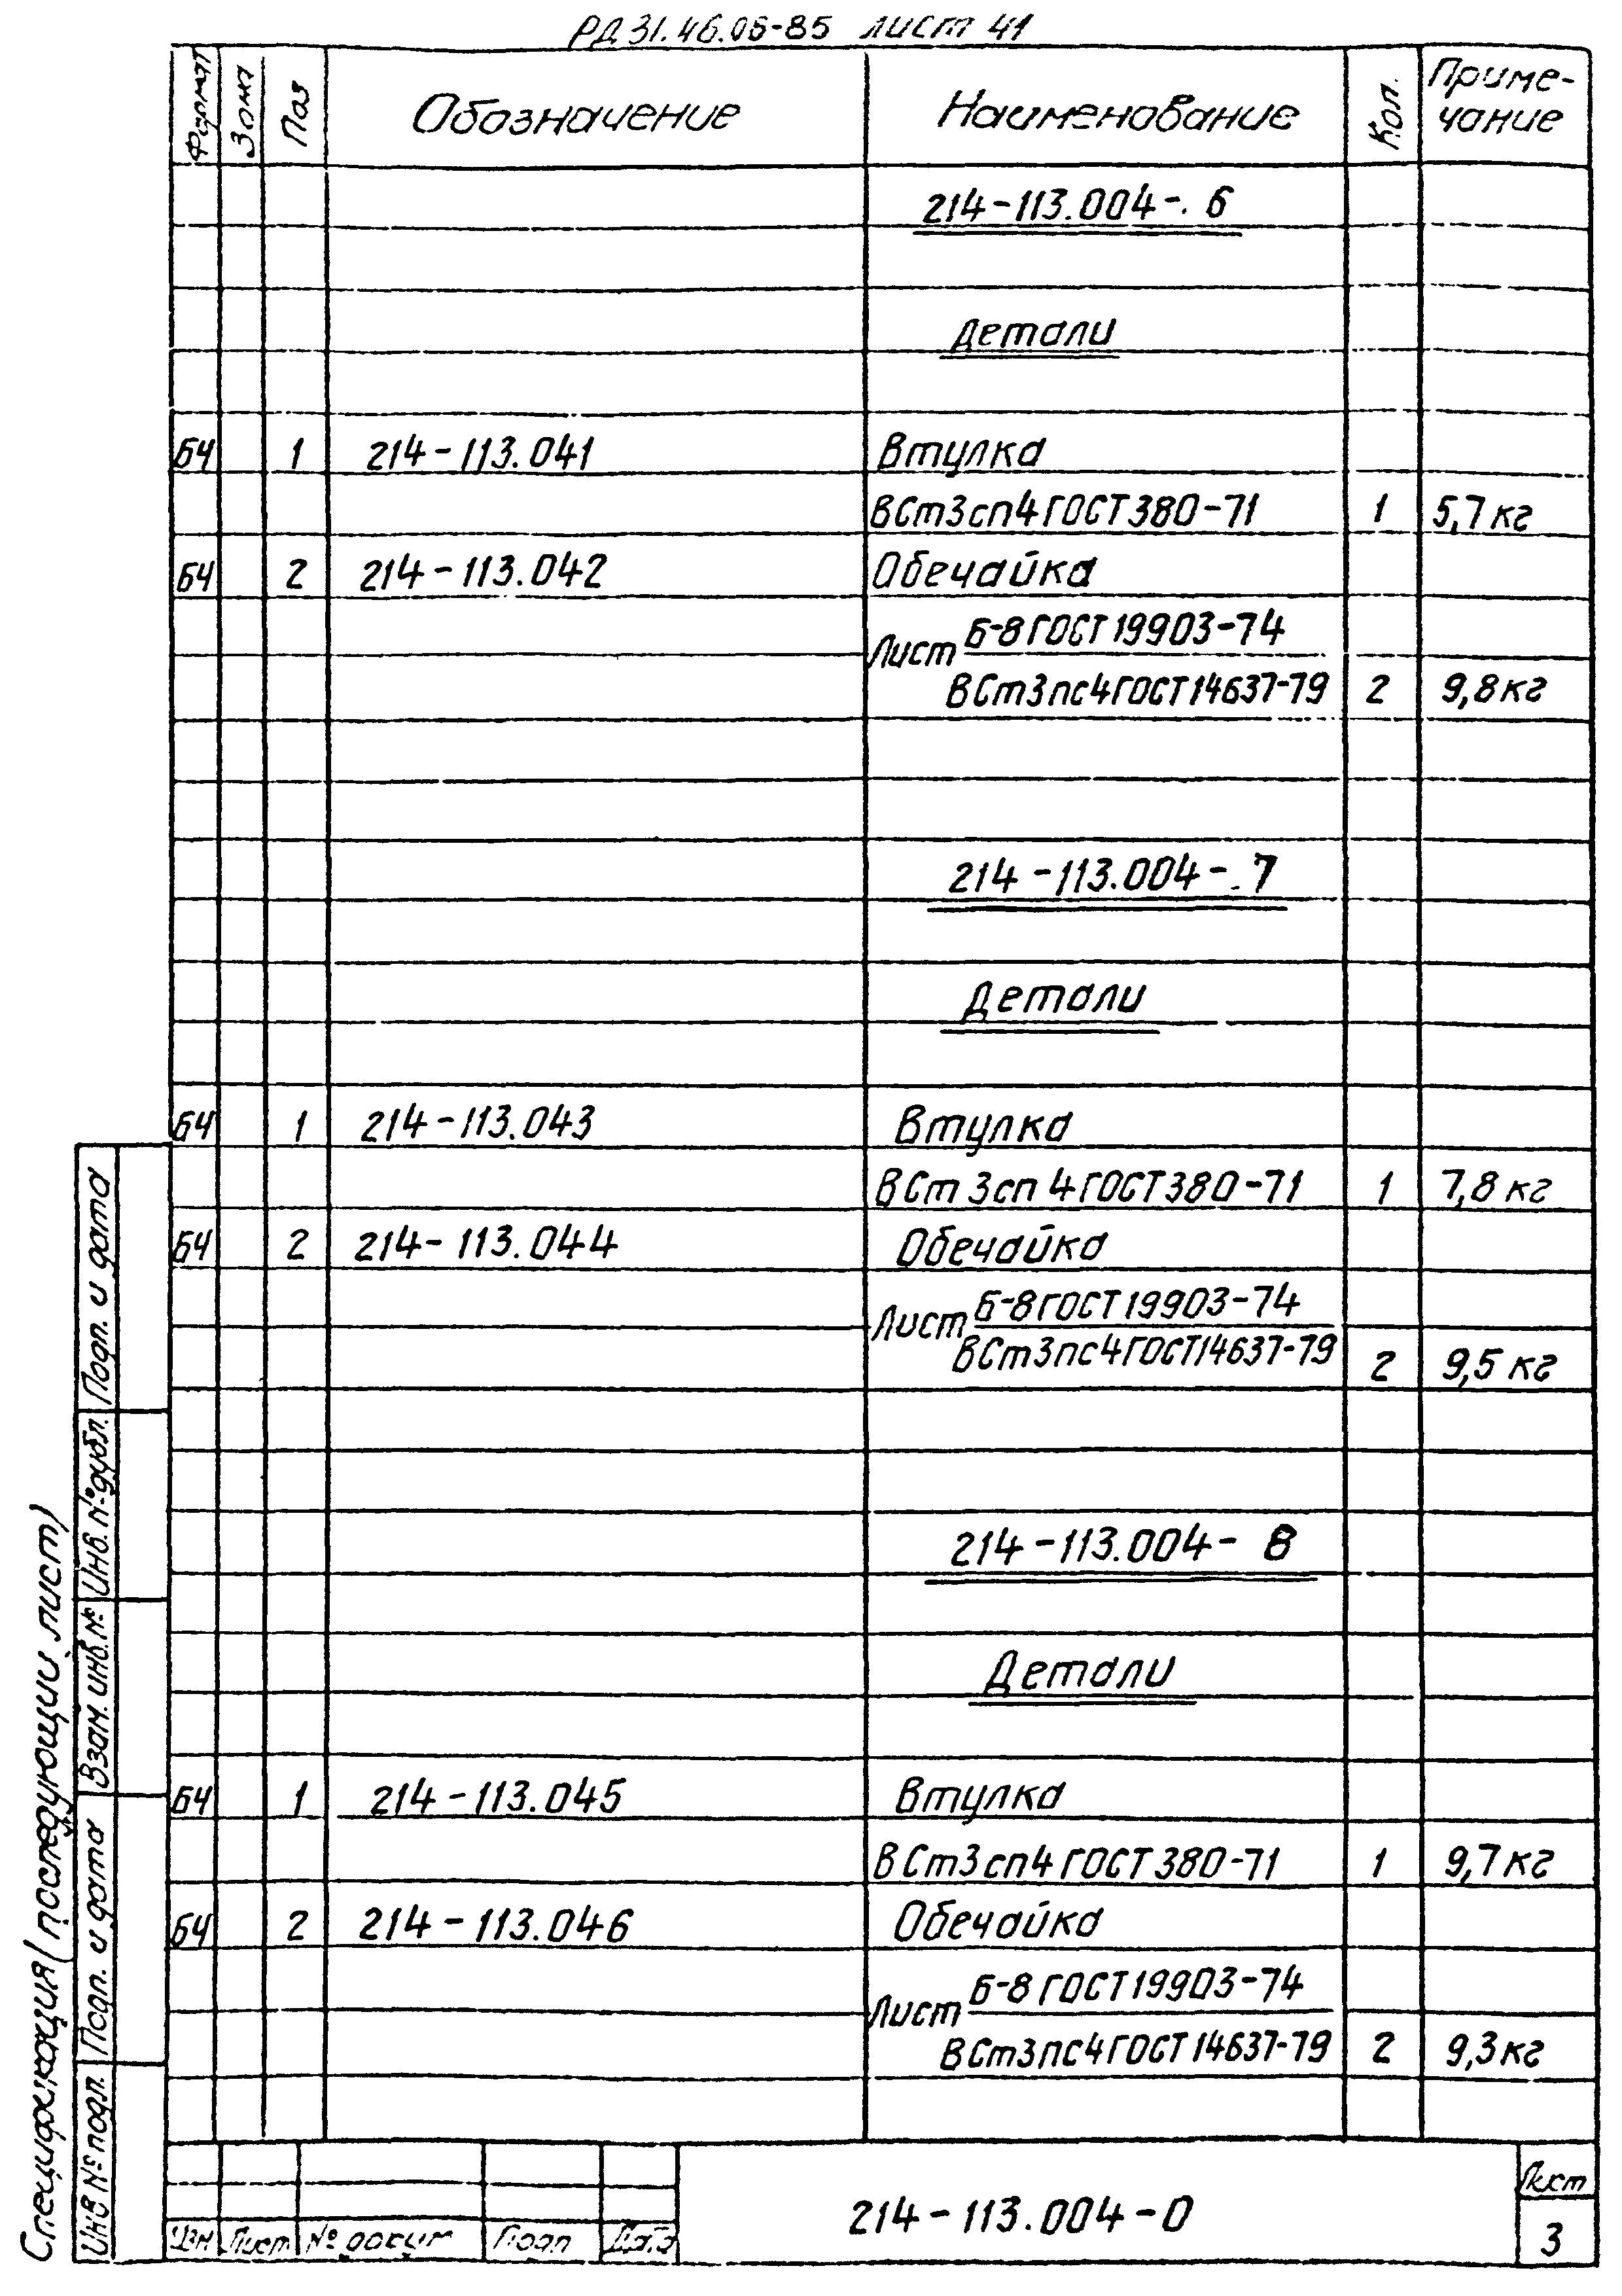 РД 31.46.06-85 лист 41
Формат Зона Поз Обозначение Наименование Кол. Приме-
чание
214-113.004-. 6
Детали
БЧ 1 214-113.041 Втулка
ВСт3сп4 ГОСТ 380-71 1 5,7 кг
БЧ 2 214-113.042 Обечайка
Б-8 ГОСТ 19903-74
Лист
ВСт3пс4 ГОСТ 14637-79 2 9,8 кг
214-113.004-. 7
Детали
БЧ 1 214-113.043 Втулка
ВСт3сп4 ГОСТ 380-71 1 7,8 кг
БЧ 2 214-113.044 Обечайка
Б-8 ГОСТ 19903-74
Лист
ВСт3пс4 ГОСТ 14637-79 2 9,5 кг
214-113.004- 8
Детали
БЧ 1 214-113.045 Втулка
ВСт3сп4 ГОСТ 380-71 1 9,7 кг
БЧ 2 214-113.046 Обечайка
Б-8 ГОСТ 19903-74
Лист
ВСт3пс4 ГОСТ 14637-79 2 9,3 кг
Изм Лист № докум Подп Дата
214-113.004-0
Лист
3
Спецификация (последующий лист)
Инв № подл. Подп. и дата Взам. инв. № Инв. № дубл. Подп. и дата